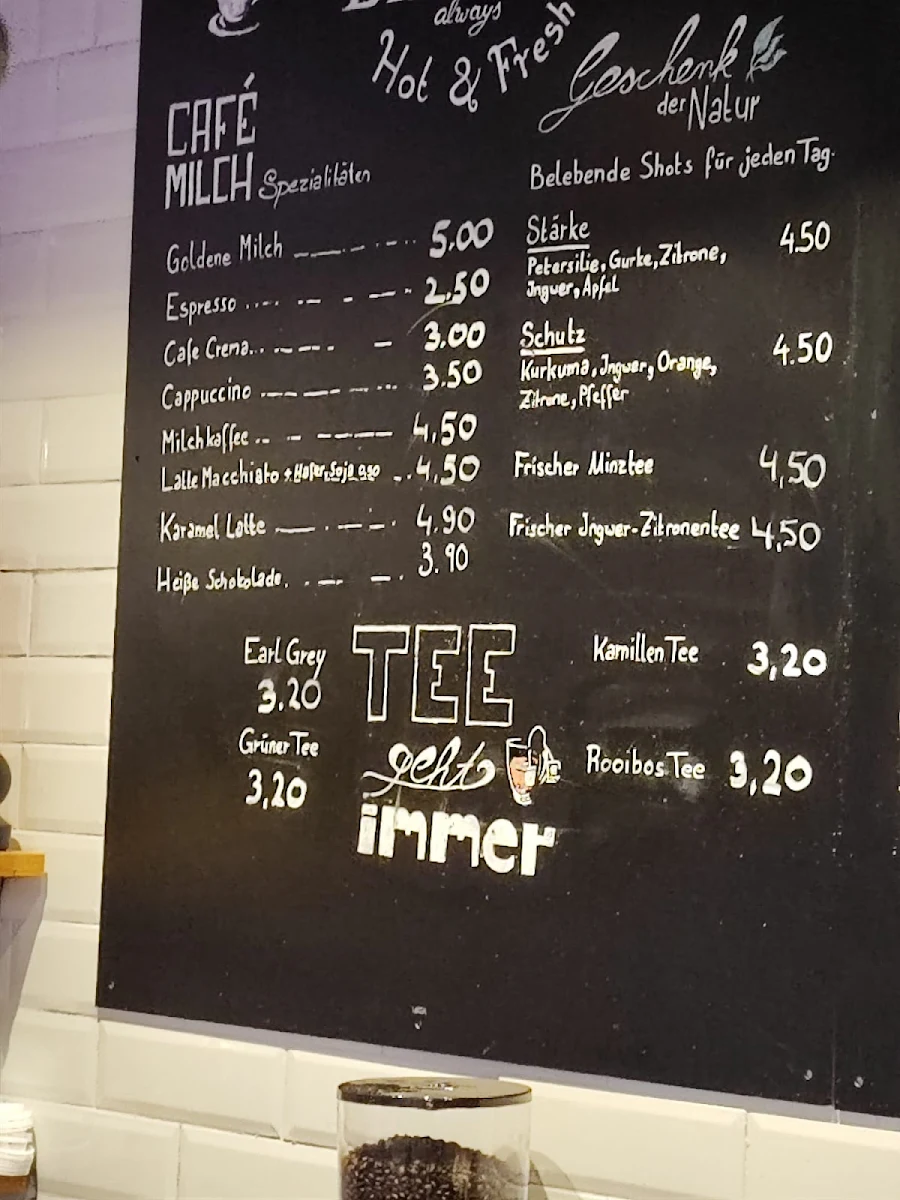 always
Hot & Fresh
CAFÉ
MILCH Spezialitäten
Goldene Milch 5.00
Espresso 2.50
Cafe Crema 3.00
Cappuccino 3.50
Milchkaffee 4,50
Latte Macchiato + Hafer, Soja 0,50 4,50
Karamel Latte 4.90
Heiße Schokolade 3.90
Geschenk
der Natur
Belebende Shots für jeden Tag.
Stärke 4.50
Petersilie, Gurke, Zitrone,
Ingwer, Apfel
Schutz 4.50
Kurkuma, Ingwer, Orange,
Zitrone, Pfeffer
Frischer Minztee 4,50
Frischer Ingwer-Zitronentee 4,50
Earl Grey
3.20
Grüner Tee
3,20
TEE
geht
immer
Kamillen Tee 3,20
Rooibos Tee 3,20